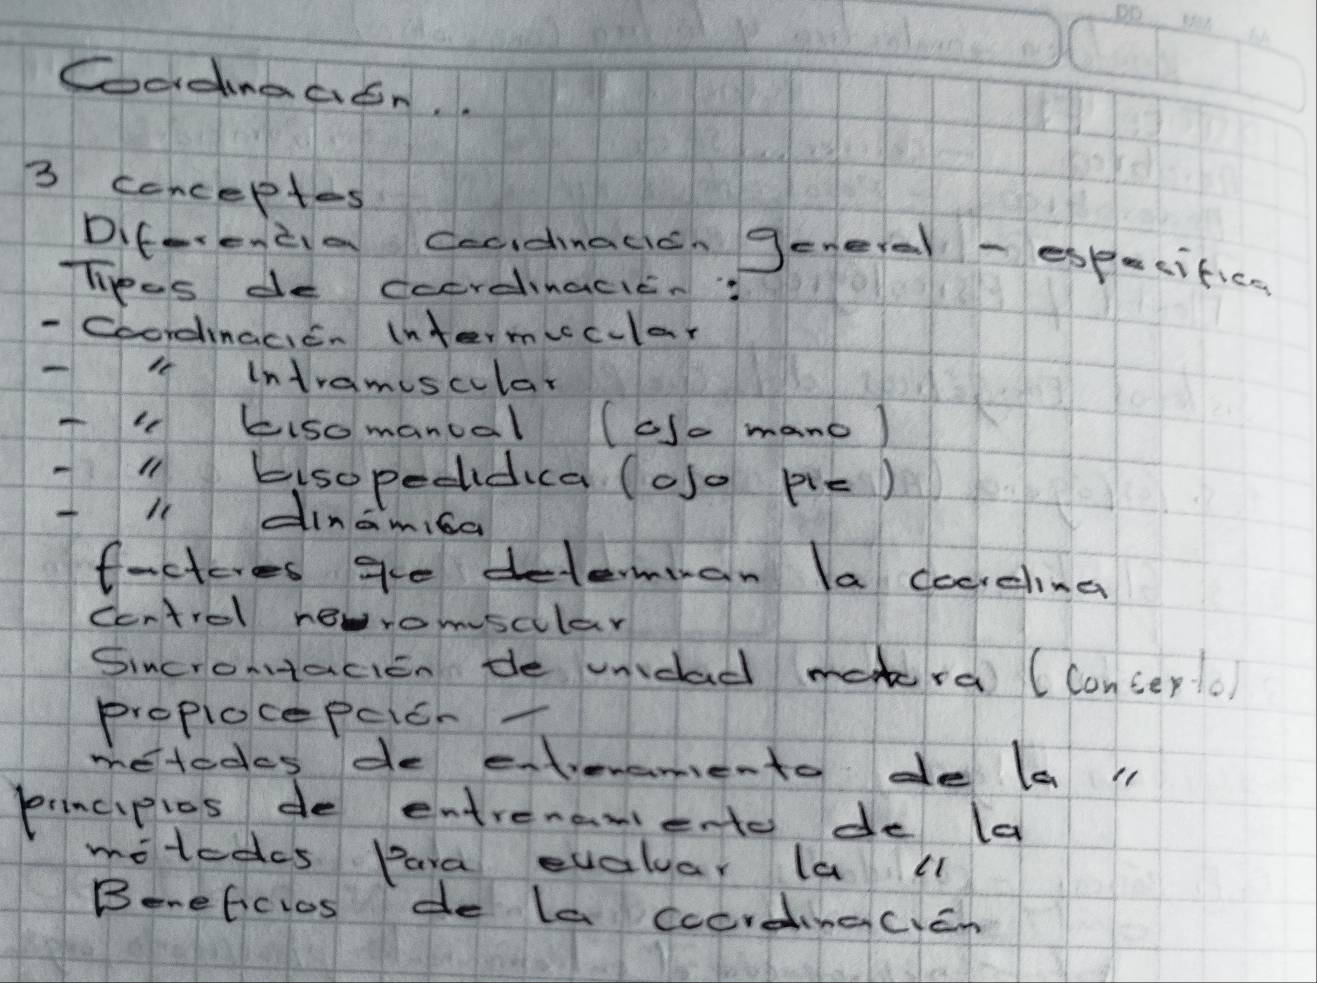 Coordinación..
3 conceptos
Diferencia coordinación general - especifica
Tipos de coordinación:
- Coordinación Intermuscular
- " Intramuscular
- " bisomanual (ojo mano)
- " bisopedidica (ojo pie)
- " dinámica
factores que determinan la coordina
control neuromuscular
Sincronización de unidad motora (Concerto)
propiocepción -
métodos de entrenamiento de la "
principios de entrenamiento de la
métodos para evaluar la "
Beneficios de la coordinación